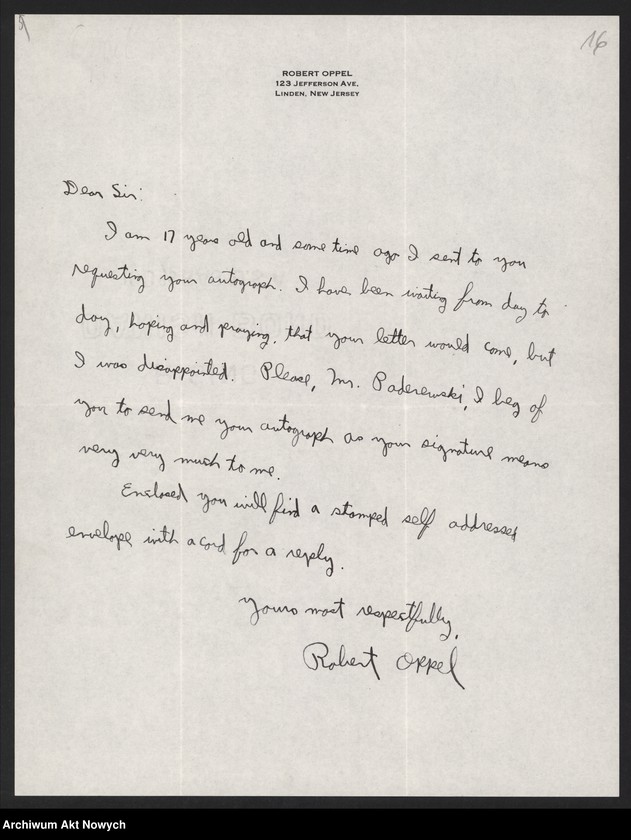 16
ROBERT OPPEL
123 JEFFERSON AVE.
LINDEN, NEW JERSEY
Dear Sir:
I am 17 years old and some time ago I sent to you
requesting your autograph. I have been waiting from day to
day, hoping and praying, that your letter would come, but
I was disappointed. Please, Mr. Paderewski, I beg of
you to send me your autograph as your signature means
very very much to me.
Enclosed you will find a stamped self addressed
envelope with a card for a reply.
Yours most respectfully,
Robert Oppel
Archiwum Akt Nowych